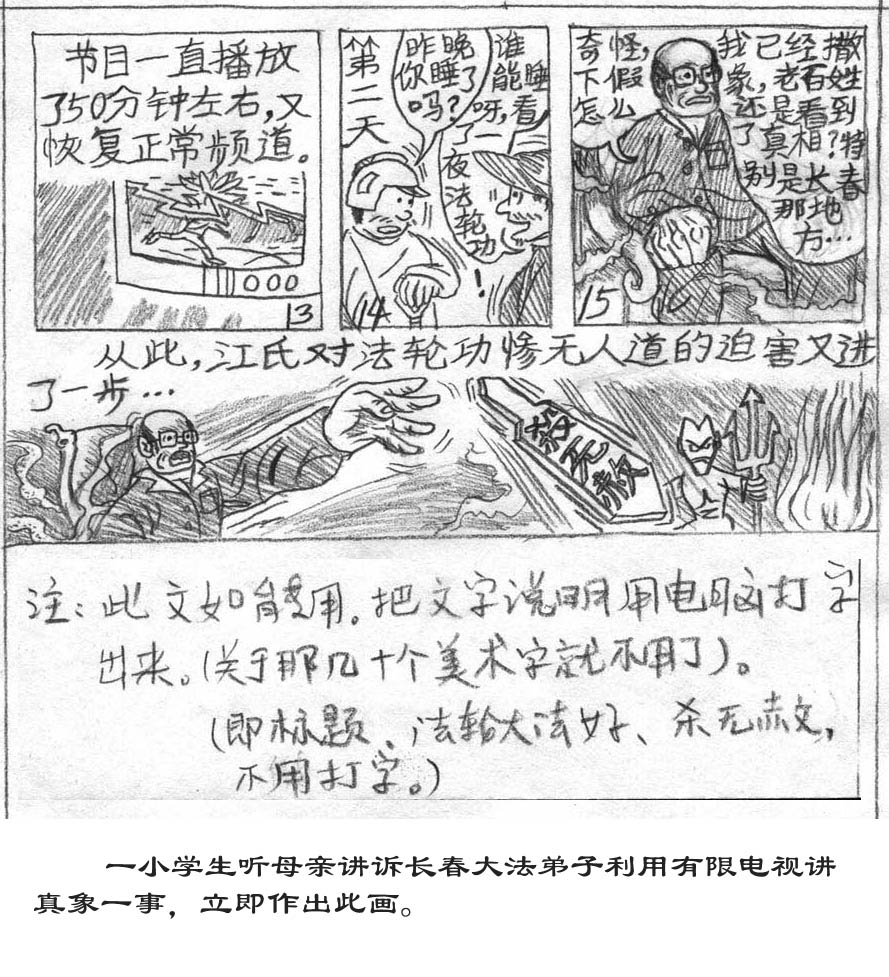 节目一直播放
了50分钟左右,又
恢复正常频道。
13
第二天
昨晚
你睡了
吗?
谁
能睡
呀,看
了一
夜法轮功
!
14
奇怪,我已经撒
下假象,老百姓
怎么还是看到
了真相?特
别是长春
那地
方…
15
从此,江氏对法轮功惨无人道的迫害又进
了一步…
杀无赦
注:此文如能用。把文字说明用电脑打字
出来。(关于那几十个美术字就不用了)。
(即标题、法轮大法好、杀无赦文,
不用打字。)
一小学生听母亲讲诉长春大法弟子利用有限电视讲
真象一事，立即作出此画。